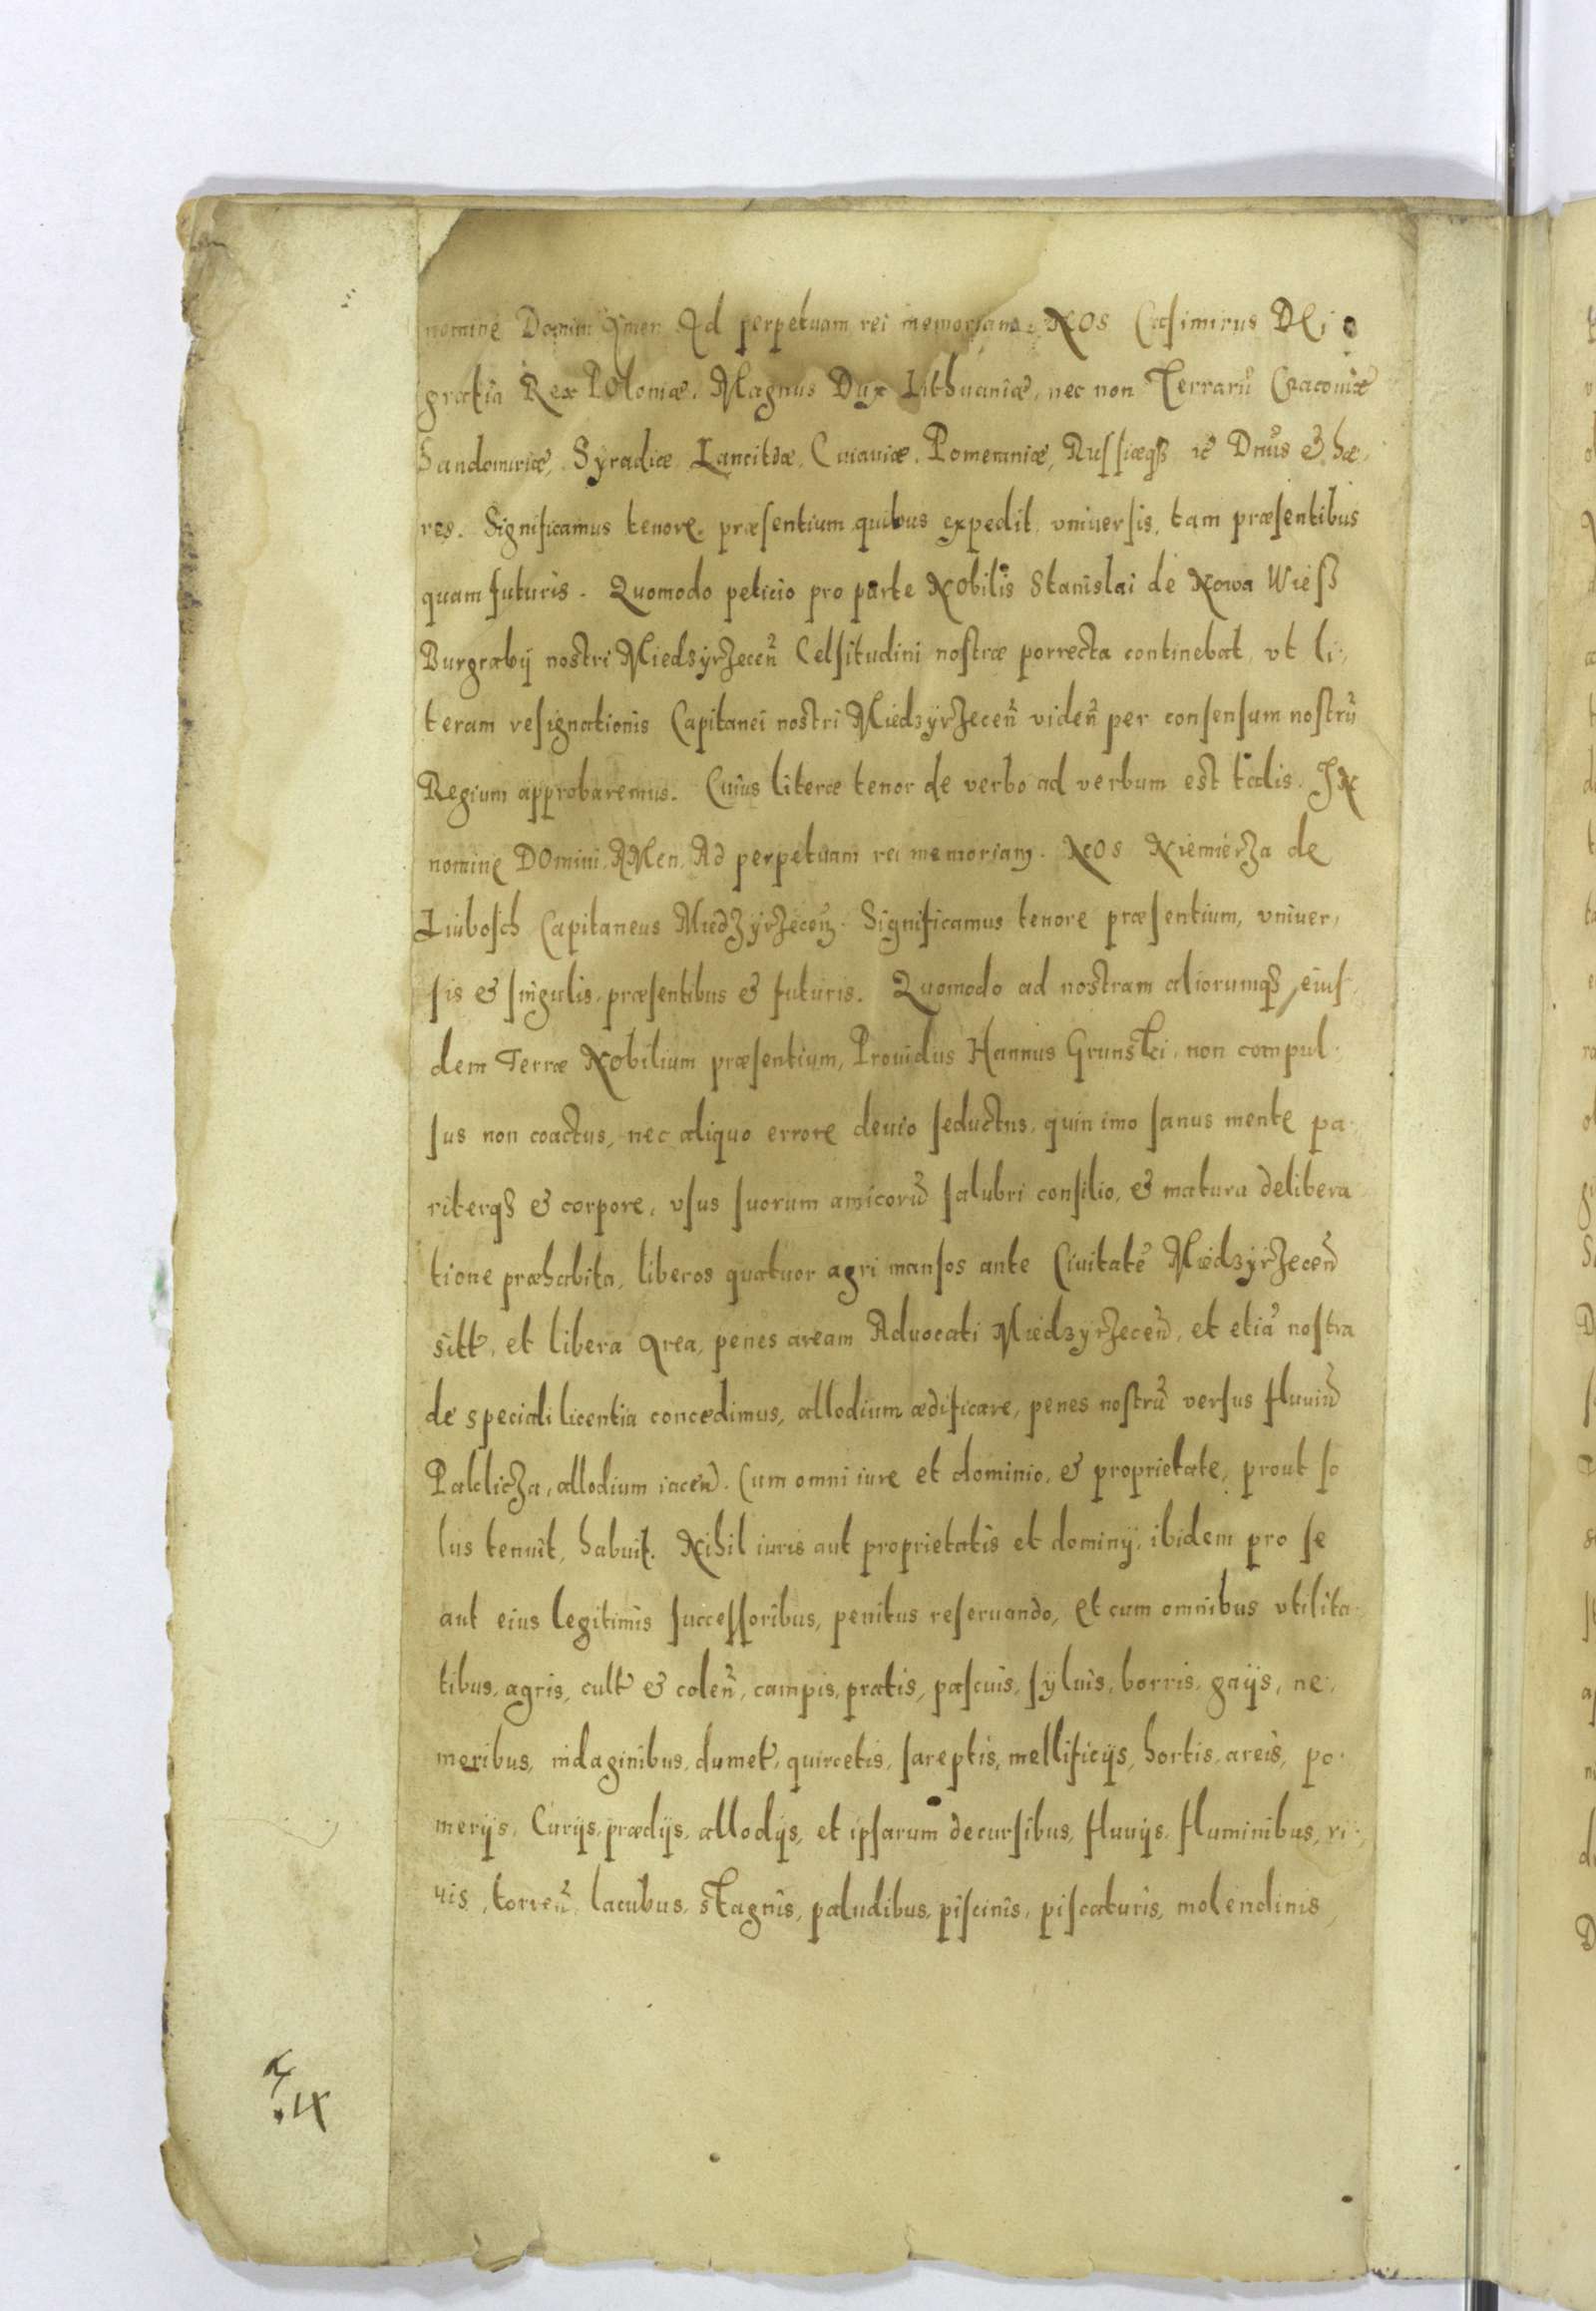 nomine Domini Amen Ad perpetuam rei memoriam. NOS Casimirus DEi
gratia Rex POloniæ, Magnus Dux Lithuaniæ, nec non Terrarũ Cracouiæ
Sandomiriæ, Syradiæ Lancitiæ, Cuiauiæ, Pomeraniæ, Russiæq3 ꝛc Dnũs & hæ,
res. Significamus tenore præsentium quibus expedit vniuersis, tam præsentibus
quam futuris. Quomodo peticio pro parte NObilis Stanislai de Nowa Wieß
Burgrabij nostri Miedzyrzeceñ Celsitudini nostræ porrecta continebat, vt li,
teram resignationis Capitanei nostri Miedzyrzeceñ videñ per consensum nostrũ
Regium approbaremus. Cuius literæ tenor de verbo ad verbum est talis. IN
nomine DOmini AMen Ad perpetuam rei memoriam. NOS Niemierza de
Liubosch Capitaneus Miedzyrzeceñ. Significamus tenore præsentium, vniuer,
sis & singulis, præsentibus & futuris. Quomodo ad nostram aliorumq3, eius
dem Terræ NObilium præsentium, Prouidus Hannus Grunski, non compul
sus non coactus, nec aliquo errore deuio seductus, quin imo sanus mente pa
riterq3 & corpore, vsus suorum amicorũ salubri consilio, & matura delibera
tione præhabita, liberos quatuor agri mansos ante Ciuitatẽ Miedzyrzeceñ
sitt, et libera Area, penes aream Aduocati Miedzyrzeceñ, et etiã nostra
de speciali licentia concedimus, allodium ædificare, penes nostrũ versus fluuiũ
Paklicza, allodium iaceñ. Cum omni iure et dominio, & proprietate, prout so
lus tenuit, habuit. Nihil iuris aut proprietatis et dominij, ibidem pro se
aut eius legitimis successoribus, penitus reseruando, Et cum omnibus vtilita
tibus, agris, cult & coleñ, campis, pratis, pascuis, syluis, borris, gaijs, ne,
moribus, indaginibus, dumet, quircetis, sareptis, mellificijs, hortis, areis, po
merijs, Curijs, prædijs, allodijs, et ipsarum decursibus, fluuijs, fluminibus, ri,
uis, torreñ, lacubus, stagnis, paludibus, piscinis, piscaturis, molendinis,